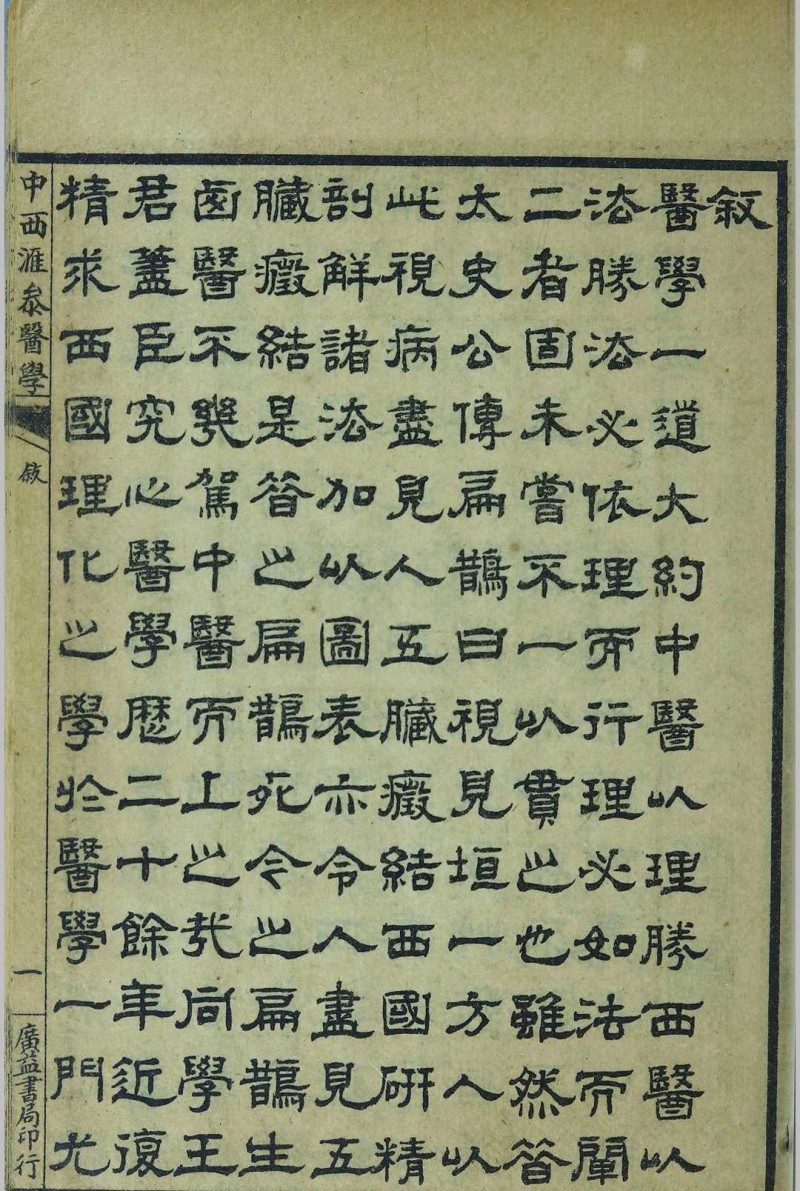 叙
醫學一道大約中醫以理勝西醫以
法勝法必依理而行理必如法而闡
二者固未嘗不一以貫之也雖然昔
太史公傳扁鵲曰視見垣一方人以
此視病盡見人五臟癥結西國研精
剖解諸法加以圖表亦令人盡見五
臟癥結是昔之扁鵲死今之扁鵲生
西醫不幾駕中醫而上之哉同學王
君藎臣究心醫學歷二十餘年近復
精求西國理化之學於醫學一門尤
中西滙叅醫學
敘
一
廣益書局印行